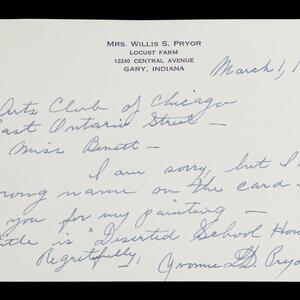 MRS. WILLIS S. PRYOR
LOCUST FARM
12240 CENTRAL AVENUE
GARY, INDIANA
March 1, 1
Arts Club of Chicago
East Ontario Street —
Miss Benett —
I am sorry, but I
rong name on the card
you for my painting —
tle is "Diserted School Hou
Regretfully,
Yvonne Pryo